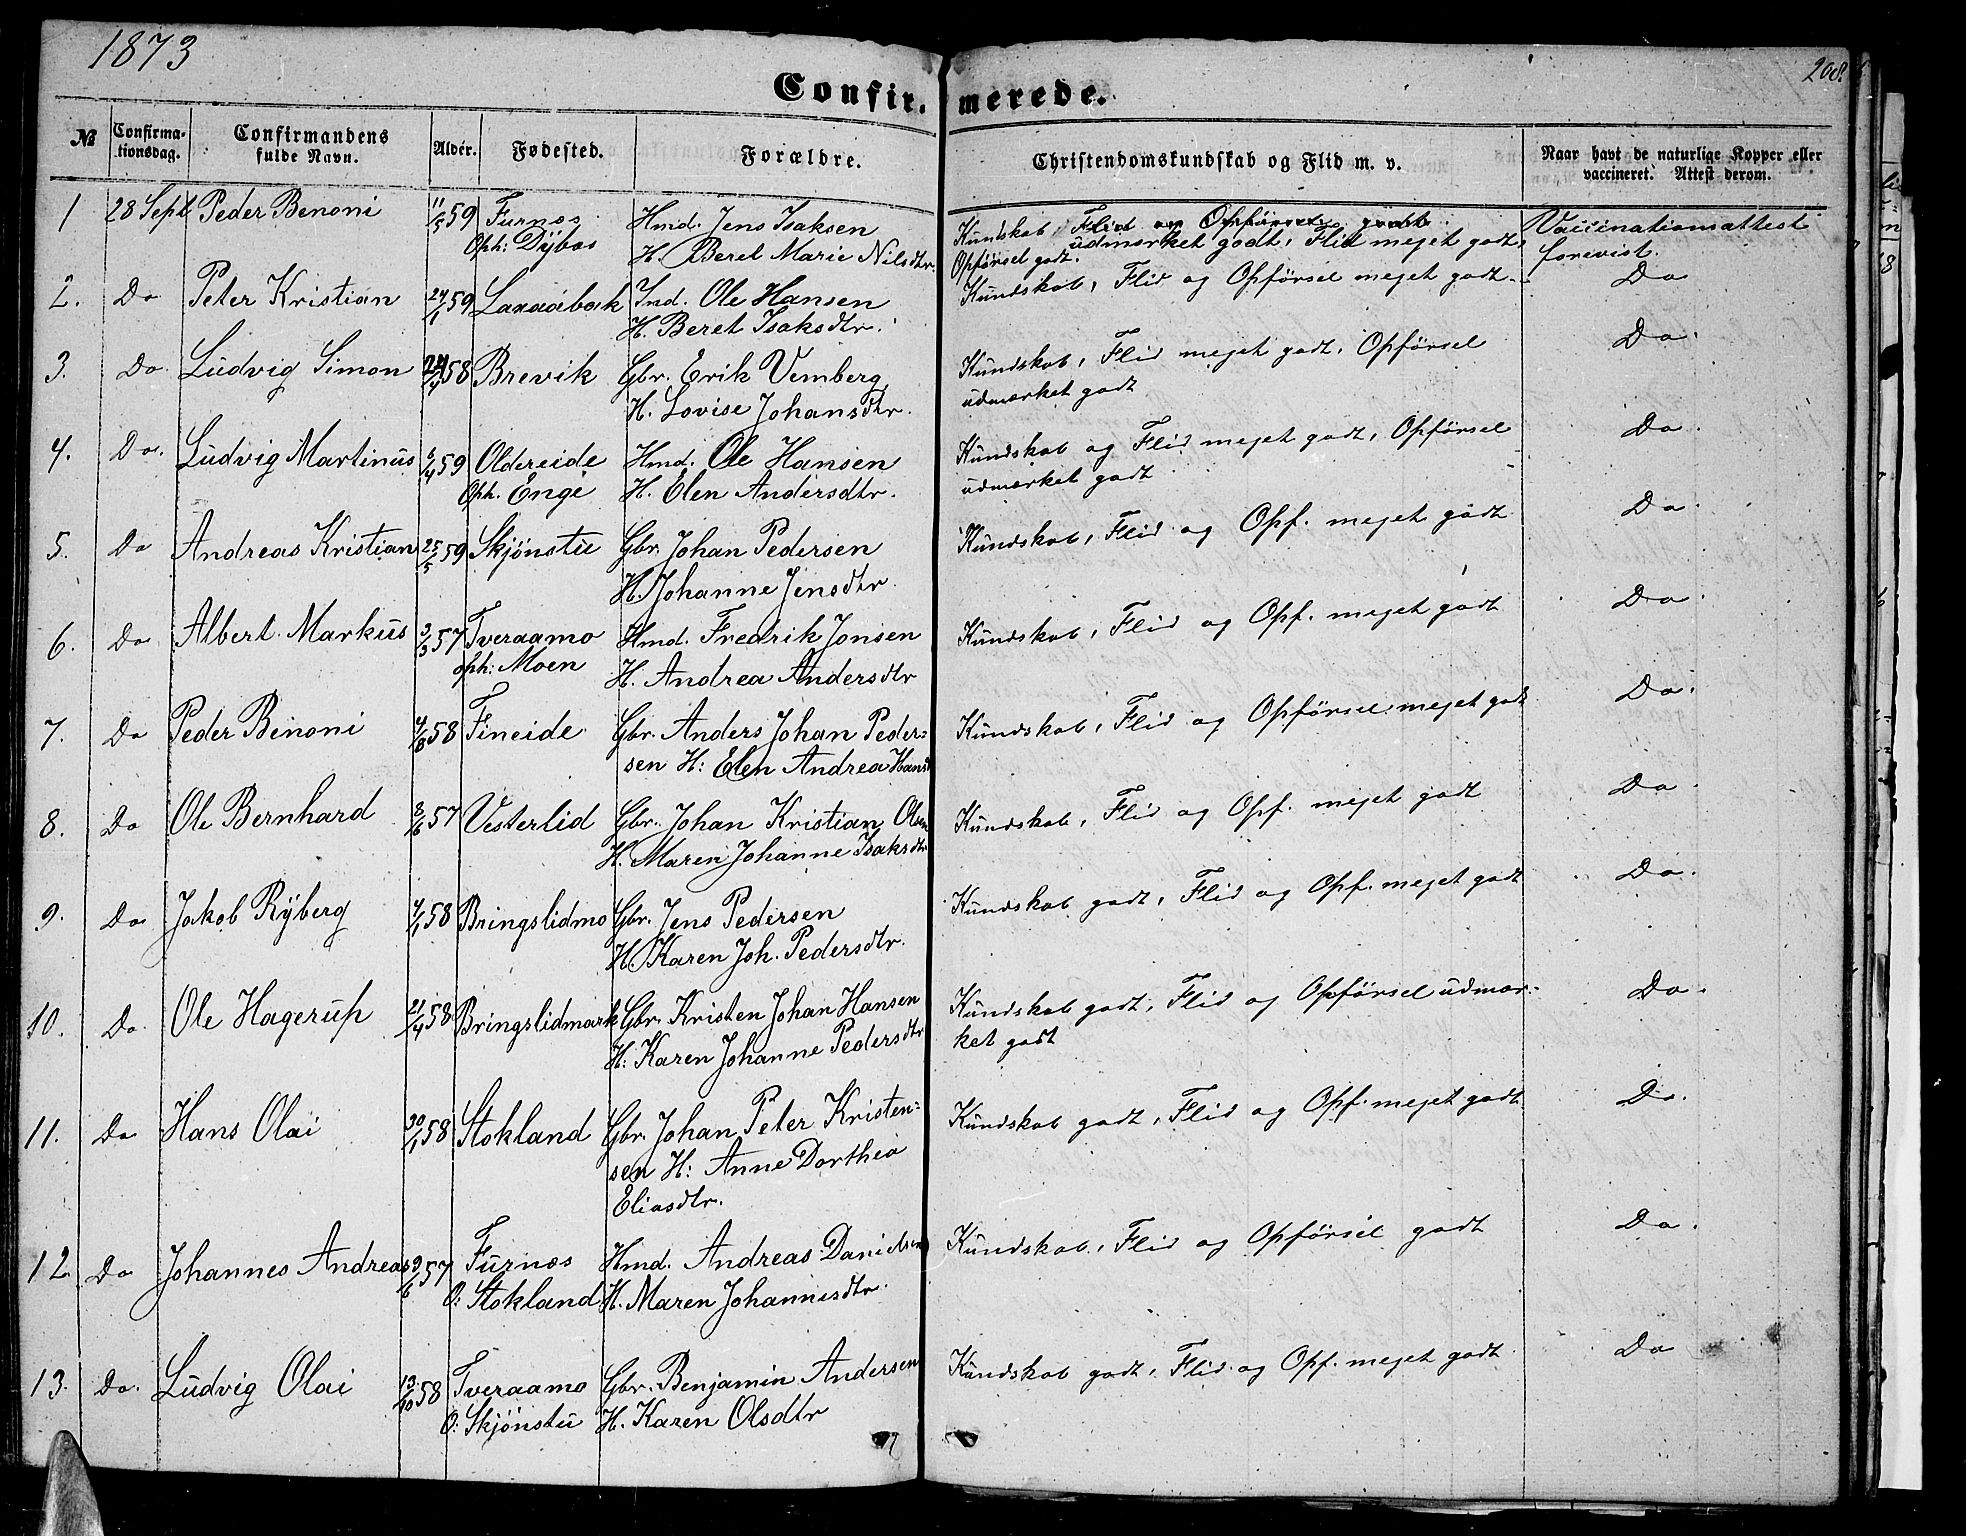 1873
208.
Confir.
merede.
№
Confirma-
tionsdag.
Confirmandens
fulde Navn.
Alder.
Fødested.
Forældre.
Christendomskundskab og Flid m. v.
Naar havt de naturlige Kopper eller
vaccineret. Attest derom.
1 28 Sept Peder Benoni 11/5 59 Furnes Hmd. Jens Isaksen
Oph: Dybos H. Beret Marie Nilsdtr.
Kundskab, Flid og Opførsel godt
udmærket godt, Flid meget godt,
Opførsel godt.
Vaccinationsattest
forevist.
2. Do Peter Kristian 24/1 59 Laxaabæk Ind. Ole Hansen
H. Beret Isaksdtr.
Kundskab, Flid og Opførsel meget godt Do
3. Do Ludvig Simon 24/4 58 Brevik Gbr. Erik Vemberg
H. Lovise Johansdtr.
Kundskab, Flid meget godt, Opførsel Do.
udmærket godt
4. Do. Ludvig Martinus 6/4 59 Oldereide Hmd. Ole Hansen
Oph. Enge H. Elen Andersdtr.
Kundskab og Flid meget godt, Opførsel Do.
udmærket godt
5. Do Andreas Kristian 25/5 59 Skjønstu Gbr. Johan Pedersen
H. Johanne Jensdtr.
Kundskab, Flid og Opf. meget godt Do.
6. Do Albert Markus 3/3 57 Tveraamo Hmd. Fredrik Jonsen
oph: Moen H. Andrea Andersdtr
Kundskab, Flid og Opf. meget godt Do.
7. Do Peder Benoni 4/8 58 Fineide Gbr. Anders Johan Peder-
sen H: Elen Andrea Hansd
Kundskab, Flid og Opførsel meget godt Do.
8. Do Ole Bernhard 8/6 57 Vesterlid Gbr. Johan Kristian Olsen
H. Maren Johanne Isaksdtr
Kundskab, Flid og Opf. meget godt Do.
9. Do Jakob Ryberg 4/1 58 Bringslidmo Gbr. Jens Pedersen
H. Karen Joh. Pedersdtr.
Kundskab godt, Flid og Opf. meget godt Do.
10. Do. Ole Hagerup 21/4 58 Bringslidmark Gbr. Kristen Johan Hansen
H: Karen Johanne Pedersdtr
Kundskab godt, Flid og Opførsel udmær- Do.
ket godt
11. Do Hans Olai 30/1 58 Stokland Gbr. Johan Peter Kristen-
sen H: Anne Dorthea
Eliasdtr.
Kundskab godt, Flid og Opf. meget godt Do.
12. Do Johannes Andreas 9/6 57 Furnes Hmd. Andreas Danielsen
O: Stokland H. Maren Johannesdtr
Kundskab, Flid og Opførsel godt Do.
13. Do. Ludvig Olai 13/10 58 Tveraamo Gbr. Benjamin Andersen
O: Skjønstu H. Karen Olsdtr
Kundskab godt, Flid og Opf. meget godt Do